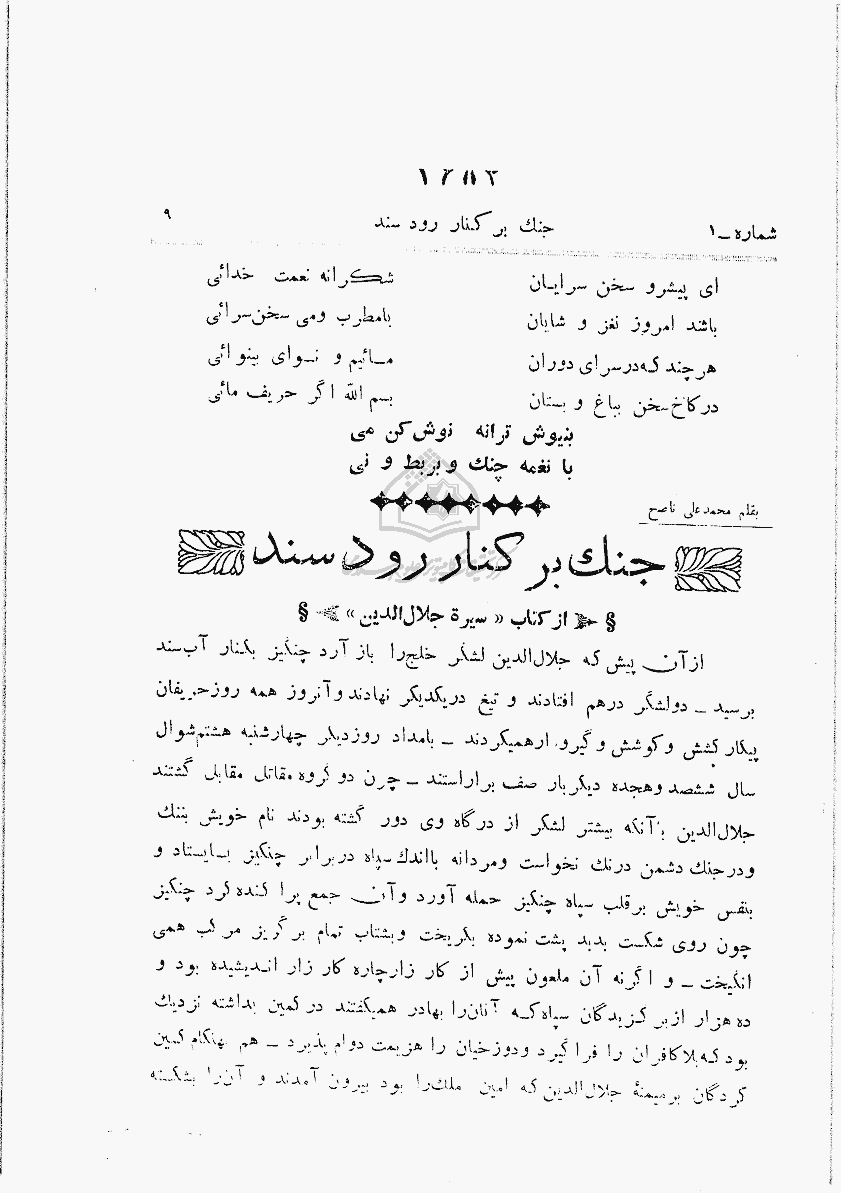 ۱۳۵۲
شماره ـ ۱ جنك بر كنار رود سند ۹
ای پیشرو سخن سرایان شكرانه نعمت خدائی
باشد امروز نغز و شایان بامطرب ومی سخن‌سرائی
هرچند كه‌درسرای دوران مـائیم و نـوای بینوائی
دركاخ‌سخن بباغ و بستان بسم الله اگر حریف مائی
بنیوش ترانه نوش‌كن می
با نغمه چنك و بربط و نی
بقلم محمدعلی ناصح
جنك بر كنار رود سند
§ از كتاب « سیرة جلال‌الدین» §
ازآن پیش كه جلال‌الدین لشكر خلج‌را باز آرد چنگیز بكنار آب‌سند
برسید ـ دولشگر درهم افتادند و تیغ دریكدیگر نهادند وآنروز همه روزحریفان
پیكار كشش وكوشش و گیرو ارهمیكردند ـ بامداد روزدیگر چهارشنبه هشتم‌شوال
سال ششصد وهجده دیگربار صف براراستند ـ چون دو گروه مقاتل مقابل گشتند
جلال‌الدین باآنكه بیشتر لشگر از درگاه وی دور گشته بودند نام خویش بننك
ودرجنك دشمن درنك نخواست ومردانه بااندك سپاه دربرابر چنگیز بـایستاد و
بنفس خویش برقلب سپاه چنگیز حمله آورد وآن جمع پرا كنده كرد چنگیز
چون روی شكست بدید پشت نموده بگریخت وبشتاب تمام بر گریز مركب همی
انگیخت ـ و اگرنه آن ملعون پیش از كار زارچاره كار زار اندیشیده بود و
ده هزار ازبر گزیدگان سپاه‌كـه آنان‌را بهادر همیگفتند در كمین بداشته نزدیك
بود كه‌بلاكافران را فرا گیرد ودوزخیان را هزیمت دوام پذیرد ـ هم بهنگام كمین
كردگان برمیمنهٔ جلال‌الدین كه امین ملك‌را بود بیرون آمدند و آن‌را بشكسته